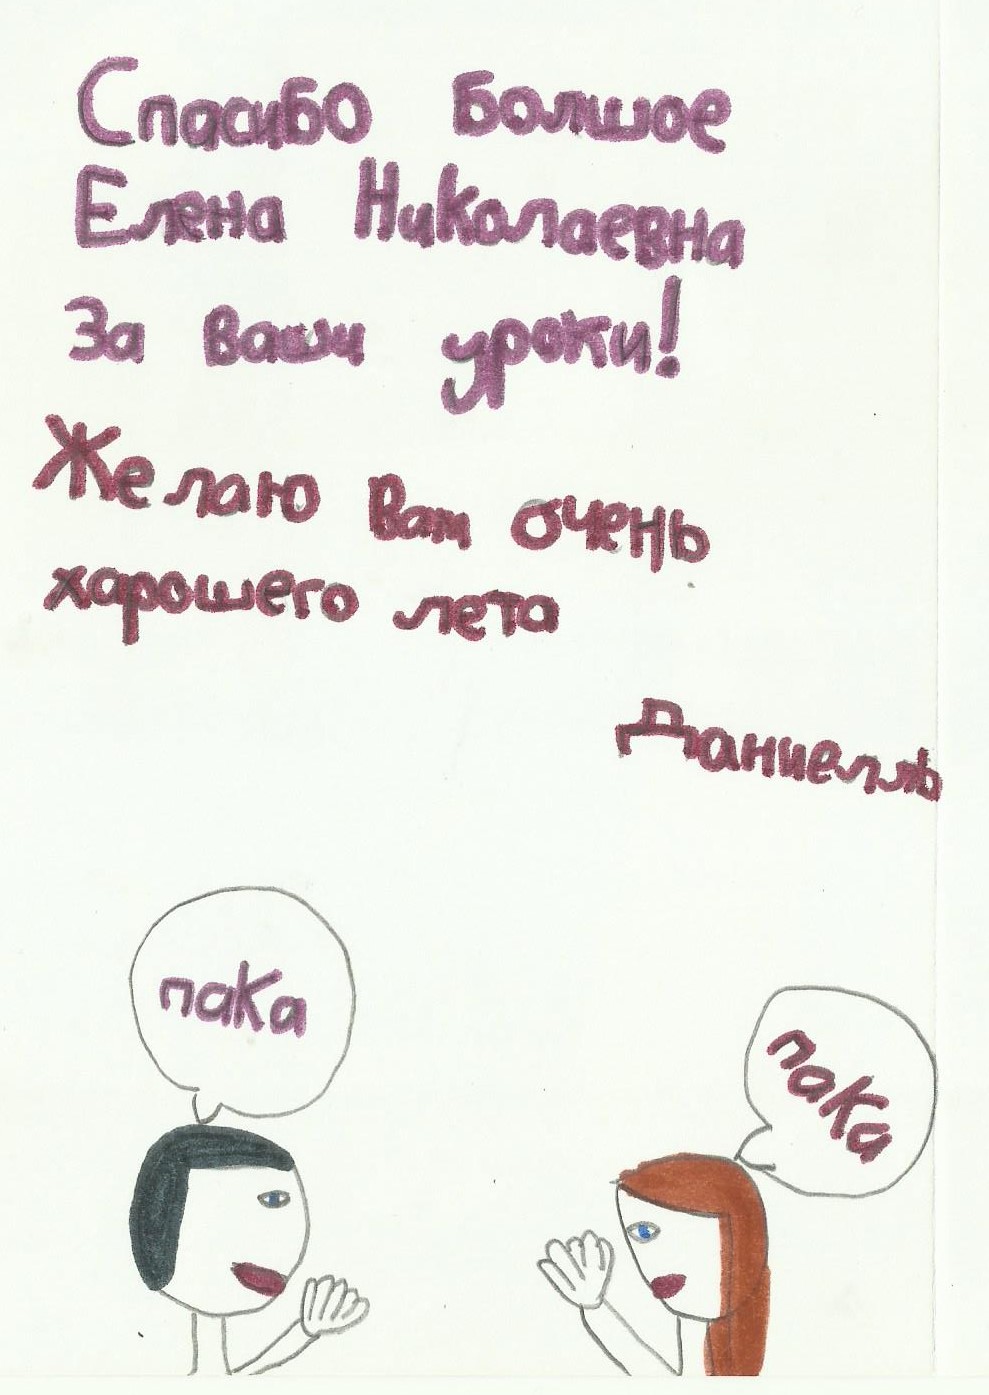 Спасибо Болшое
Елена Николаевна
За ваши уроки!
Желаю Вам очень
харошего лета
Даниелль
пака
пака